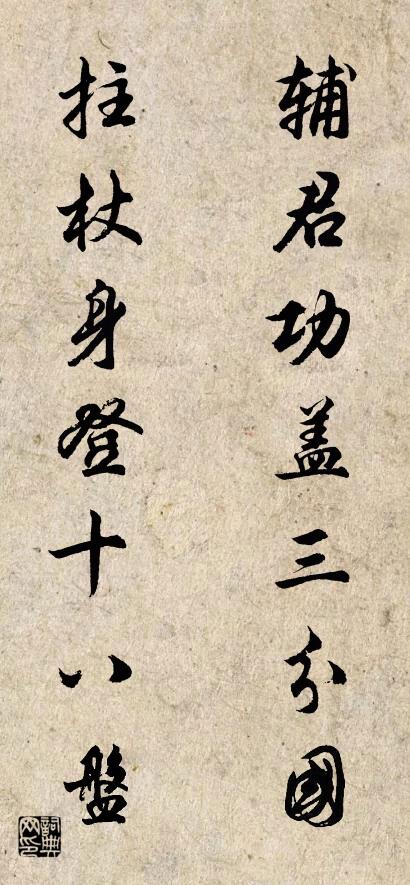 辅君功盖三分國
拄杖身登十八盤
詞典網印